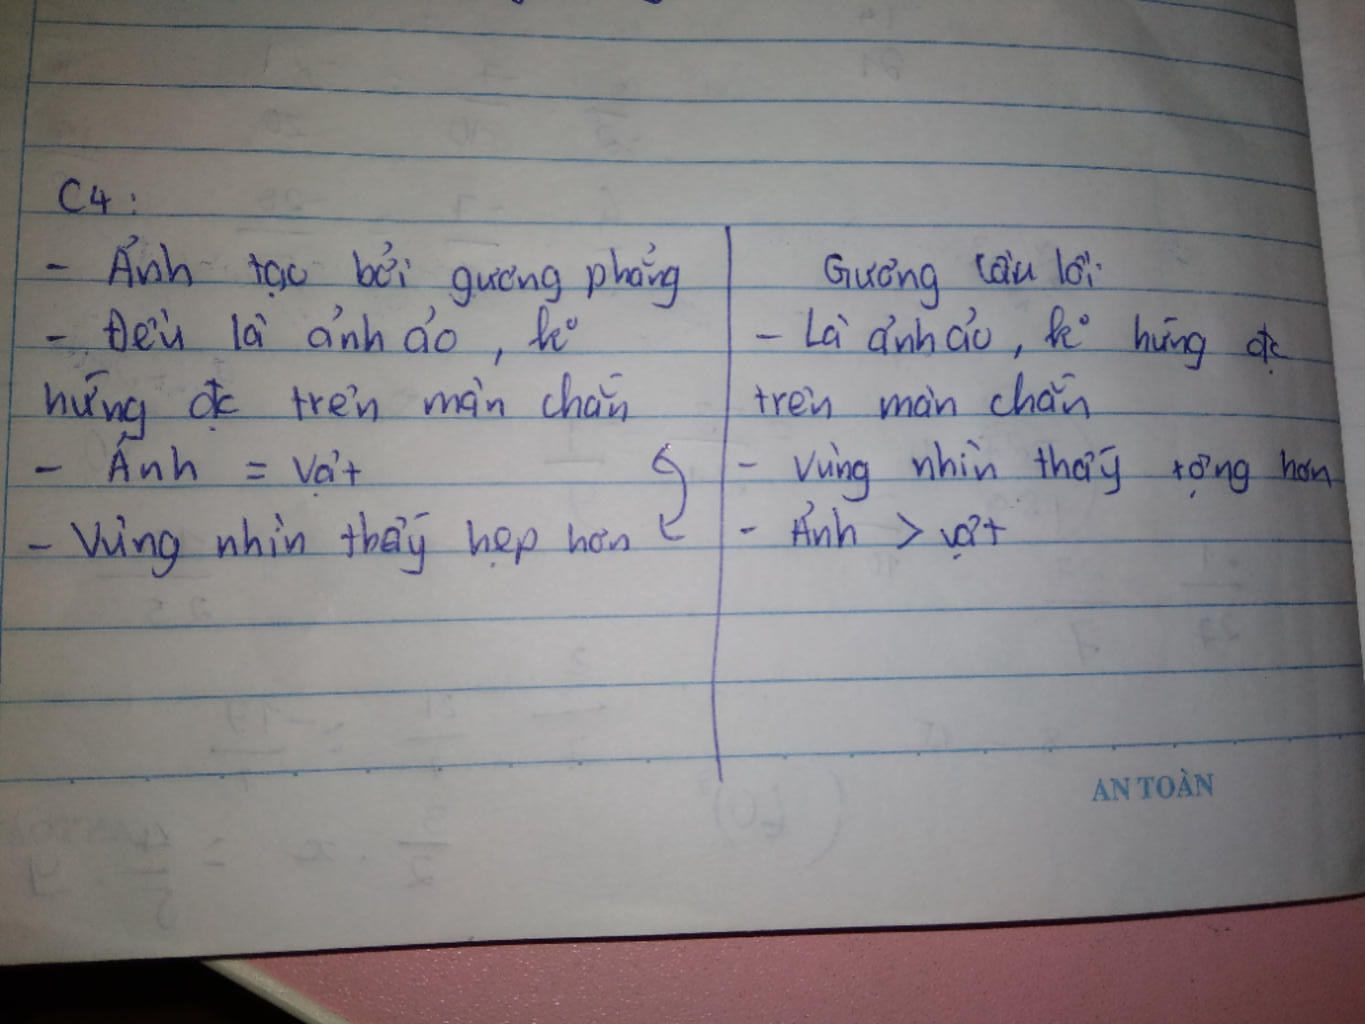 C4:
- Ảnh tạo bởi gương phẳng
- Đều là ảnh ảo, kº
hứng đc trên màn chắn
- Ảnh = vật
- Vùng nhìn thấy hẹp hơn
Gương cầu lồi
- Là ảnh ảo, kº hứng đc
trên màn chắn
- Vùng nhìn thấy rộng hơn
- Ảnh > vật
AN TOÀN